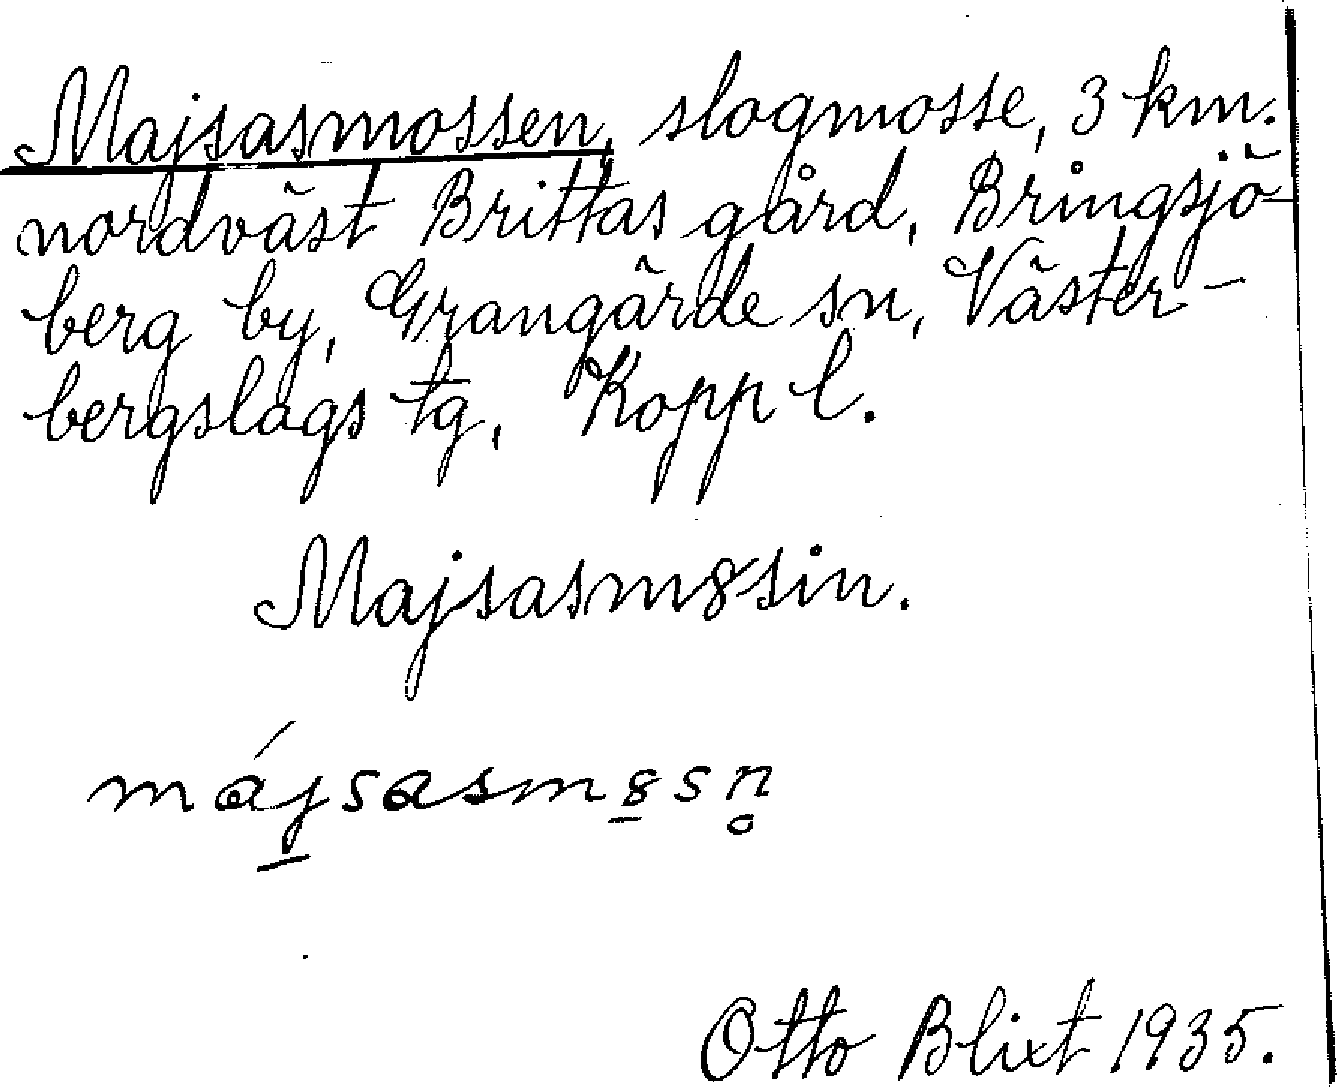 Majsasmossen, slogmosse, 3 km.
nordväst Brittas gård, Bringsjö-
berg by, Grangärde sn, Väster-
bergslags tg, Kopp l.
Majsasm8sin.
májsasm8sn̥
Otto Blixt 1935.